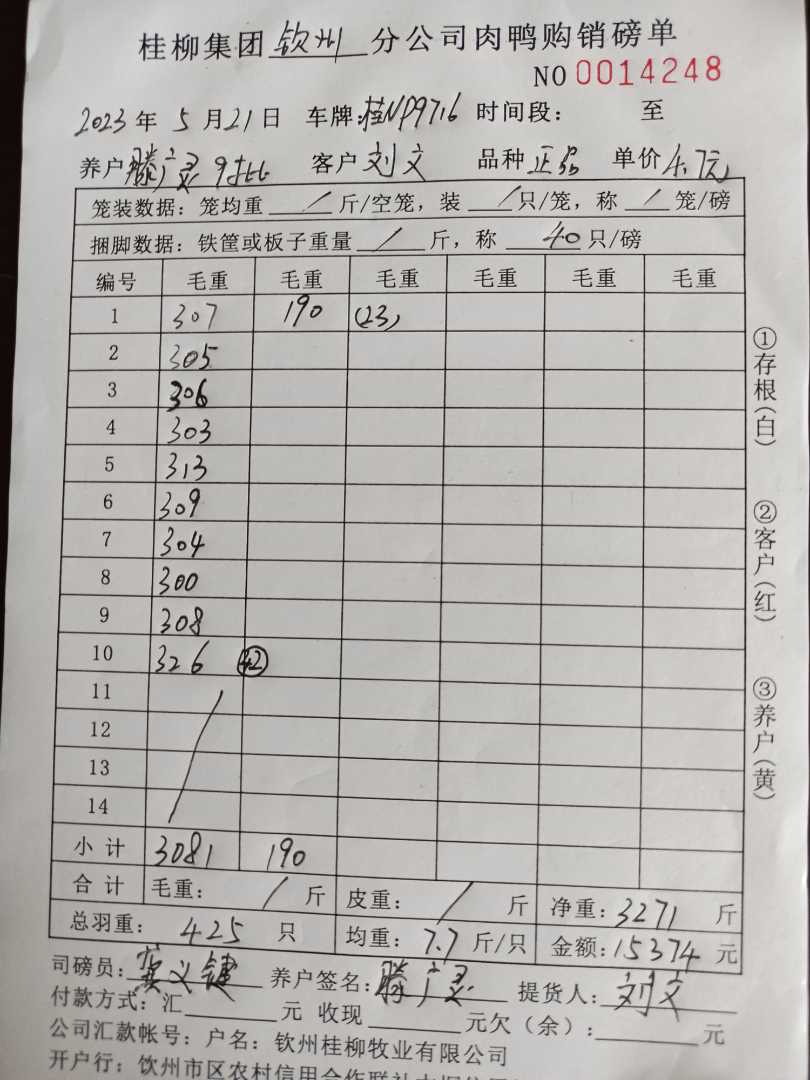 桂柳集团钦州分公司肉鸭购销磅单
NO 0014248
2023年5月21日 车牌:桂NP9716 时间段: 至
养户滕广灵 客户刘文 品种正品 单价4.7元
笼装数据:笼均重/斤/空笼,装/只/笼,称/笼/磅
捆脚数据:铁筐或板子重量/斤,称40只/磅
编号 毛重 毛重 毛重 毛重 毛重 毛重
1 307 190 (23)
2 305
3 306
4 303
5 313
6 309
7 304
8 300
9 308
10 326 42
11
12
13
14
小计 3081 190
合计 毛重:/斤 皮重:/斤 净重:3271斤
总羽重:425只 均重:7.7斤/只 金额:15374元
司磅员:龚义键 养户签名:滕广灵 提货人:刘文
付款方式:汇 元 收现 元欠(余): 元
公司汇款帐号:户名:钦州桂柳牧业有限公司
开户行:钦州市区农村信用合作联社
①存根(白)
②客户(红)
③养户(黄)